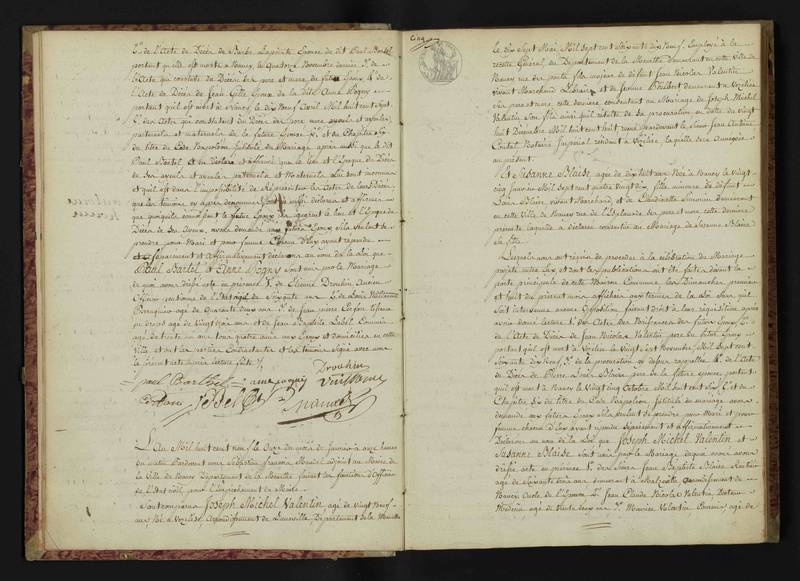 1.° de l'acte de Décès de Barbe Lapointe Epouse du dit Paul Bartel
portant qu'elle est morte à Nancy, le Quatorze Novembre dernier 3.° de
l'acte qui constate le Décès des père et mère du futur Epoux 4.° de
l'acte de Décès de Jean Gille Epoux de la dite Anne Pogny
portant qu'il est mort à Nancy, le dix Neuf Avril Mil huit cent sept
5.° des actes qui constatent du Décès des ayeuls et ayeules
paternels et maternels de la future Epouse 6.° et du Chapitre six
du titre du Code Napoléon Intitulé du Mariage après aussi que le dit
Paul Bartel, Nous a déclaré et affirmé que le lieu et l'époque du Décès
de ses ayeuls et ayeules paternels et Maternels lui sont inconnus
et qu'il est dans l'impossibilité de Représenter les actes de leurs Décès,
que les témoins cy après dénommés Nous ont aussi déclaré et affirmé
que quoiqu'ils connoissent le futur Epoux ils ignorent le lieu et l'époque du
Décès de ses ayeux, avons demandé aux futurs Epoux s'ils veulent se
prendre pour Mari et pour femme Chacun d'Eux ayant répondu
séparement et affirmativement déclarons au nom de la loi que
Paul Bartel et Anne Pogny sont unis par le Mariage
de quoi avons dressé acte en présence 1.° de Etienne Drouhin Ancien
2.° de Louis
Perruquier agé de Quarante deux ans 3.° de Jean pierre
agé de Vingt neuf ans et de Jean Baptiste Label
agé de trente un ans tous quatre amis aux Epoux et domiciliés en cette
Ville et ont les parties Contractantes et les témoins signé avec nous
le présent acte après lecture faite /.
Drouhin
paul Bartel anne pogny
L'An Mil huit cent neuf le Onze du mois de Janvier à onze heures
du matin Pardevant nous Sébastien françois Mandel adjoint au Maire de
la Ville de Nancy Département de la Meurthe faisant les fonctions d'officier
de l'Etat civil, par l'Empêchement du Maire
Sont comparus Joseph Michel Valentin agé de Vingt Neuf
ans Né à Vezelise arrondissement de Lunéville Département de la Meurthe
Cinq
le dix Sept Mai Mil Sept cent Soixante dix Neuf, Employé à la
recette Général, du Département de la Meurthe Demeurant en cette Ville de
Nancy rue des ponts, fils majeur de défunt Jean Nicolas Valentin
vivant Marchand Libraire et de femme Philbert demeurant à Vezelise
Ses père et mère cette dernière consentant au Mariage de Joseph Michel
Valentin Son fils ainsi qu'il résulte de sa procuration en datte du Vingt
huit Décembre Mil huit cent huit, passé pardevant le Sieur Jean Antoine
Contal Notaire Impérial résidant à Vezelise laquelle sera Annexée
au présent.
Et Susanne Blaise agée de dix huit ans Née à Nancy le Vingt
cinq Janvier Mil Sept cent quatre Vingt dix, fille mineure de défunt
Louis Blaise vivant Marchand, et de Claudinette Simonin Demeurant
en cette Ville de Nancy rue de l'Esplanade Ses père et mère cette dernière
présente laquelle a déclaré consentir au Mariage de Susanne Blaise
Sa fille.
Lesquels nous ont requis de procéder à la célébration du Mariage
projetté entre Eux et dont les publications ont été faites devant la
porte principale de cette Maison Commune les Dimanches premier
et huit du présent mois affichées aux termes de la Loi sans qu'il
soit intervenu aucune Opposition faisant droit à leur requisition après
avoir donné lecture 1.° des Actes de Naissances des futurs Epoux 2.°
de l'Acte de Décès de Jean Nicolas Valentin père du futur Epoux
portant qu'il est mort à Vezelise le Vingt six Novembre, Mil Sept cent
Soixante dix Neuf, 3.° de la procuration cy dessus rappellée 4.° de l'acte
de Décès de Pierre Louis Blaise père de la future épouse, portant
qu'il est mort à Nancy le Vingt cinq Octobre Mil huit cent Six 5.° et du
Chapitre Six du titre du Code Napoléon Intitulé du mariage avons
demandé aux futurs Epoux s'ils veulent se prendre pour Mari et pour
femme chacun d'Eux ayant répondu séparement et affirmativement
Déclarons au nom de la Loi que Joseph Michel Valentin et
Susanne Blaise Sont unis par le Mariage de quoi nous avons
dressé acte en présence 1.° du Sieur Jean Baptiste Blaise Rentier
agé de Soixante trois ans demeurant à Malzéville arrondissement de
Nancy Oncle de l'Epouse 2.° Jean Claude Nicolas Valentin Docteur
Médecin agé de trente deux ans 3.° Maurice Valentin Commis agé de